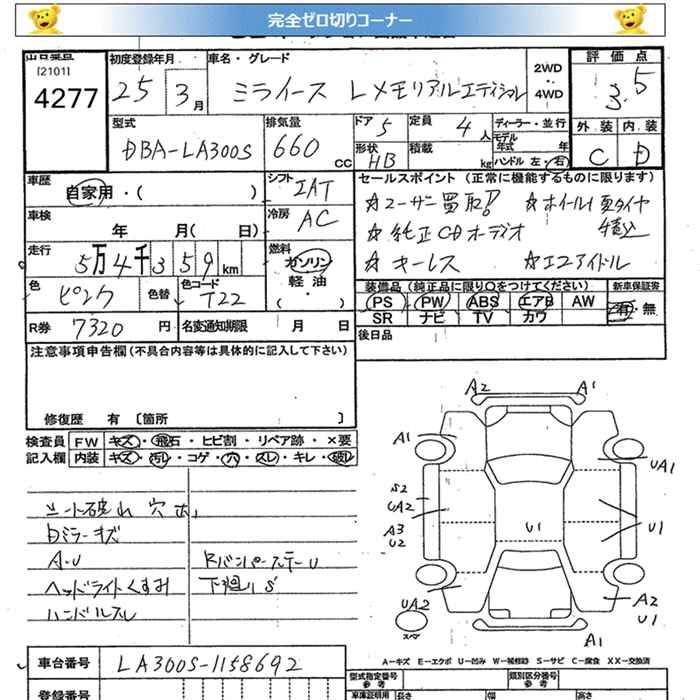 完全ゼロ切りコーナー
出品票
[2101]
4277
初度登録年月
25 3月
車名・グレード
ミライース Lメモリアルエディション
2WD
・
4WD
評価点
3.5
型式
DBA-LA300S
排気量
660 CC
ドア 5
定員 4 人
ディーラー・並行
モデル年式 年
形状 HB
積載 kg
ハンドル 左・右
外装 内装
C D
車歴
自家用・( )
シフト IAT
セールスポイント(正常に機能するものに限ります)
☆ユーザー買取! ☆ホイール1夏タイヤ積込
☆純正CDオーデオ
☆キーレス ☆エコアイドル
車検
年 月( 日)
冷房 AC
走行
5万4千359km
燃料
ガソリン
軽油
・( )
色 ピンク
色替
色コード T22
装備品(純正品に限り○をつけてください)
新車保証書
PS PW ABS エアB AW
有・無
SR ナビ TV カワ
R券 7320 円
名変通知期限 月 日
後日品
注意事項申告欄(不具合内容等は具体的に記入して下さい)
修復歴 有 〔箇所 〕
検査員 FW キズ・飛石・ヒビ割・リペア跡・×要
記入欄 内装 キズ・汚レ・コゲ・穴・スレ・キレ・破レ
シート破れ 穴
ミラーキズ
A・U
ヘッドライトくすみ
ハンドルスレ
RバンパーステーU
下廻りS
A2 A1
A1
UA1
S2
UA2
A3
U2
U1
U1
UA2
スペア
A2
U1
A1
A−キズ E−エクボ U−凹み W−補修跡 S−サビ C−腐食 XX−交換済
車台番号 LA300S-1158692
登録番号
型式指定番号
参考
類別区分番号
参考
車庫証明用 長さ 幅 高さ